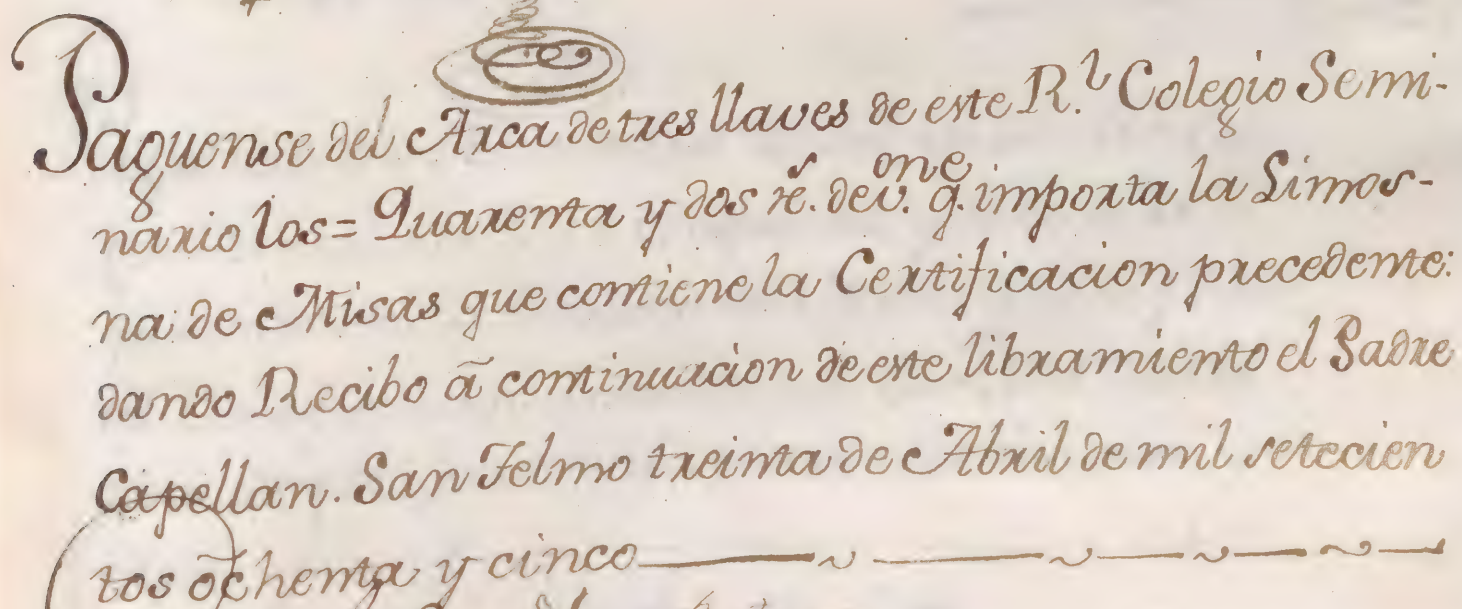 Paguense del Arca de tres llaves de este R.l Colegio Semi-
nario los = Quarenta y dos rs. de v.on q.e importa la Limos-
na de Misas que contiene la Certificacion precedente:
dando Recibo â continuacion de este libramiento el Padre
Capellan. San Telmo treinta de Abril de mil setecien
tos ochenta y cinco